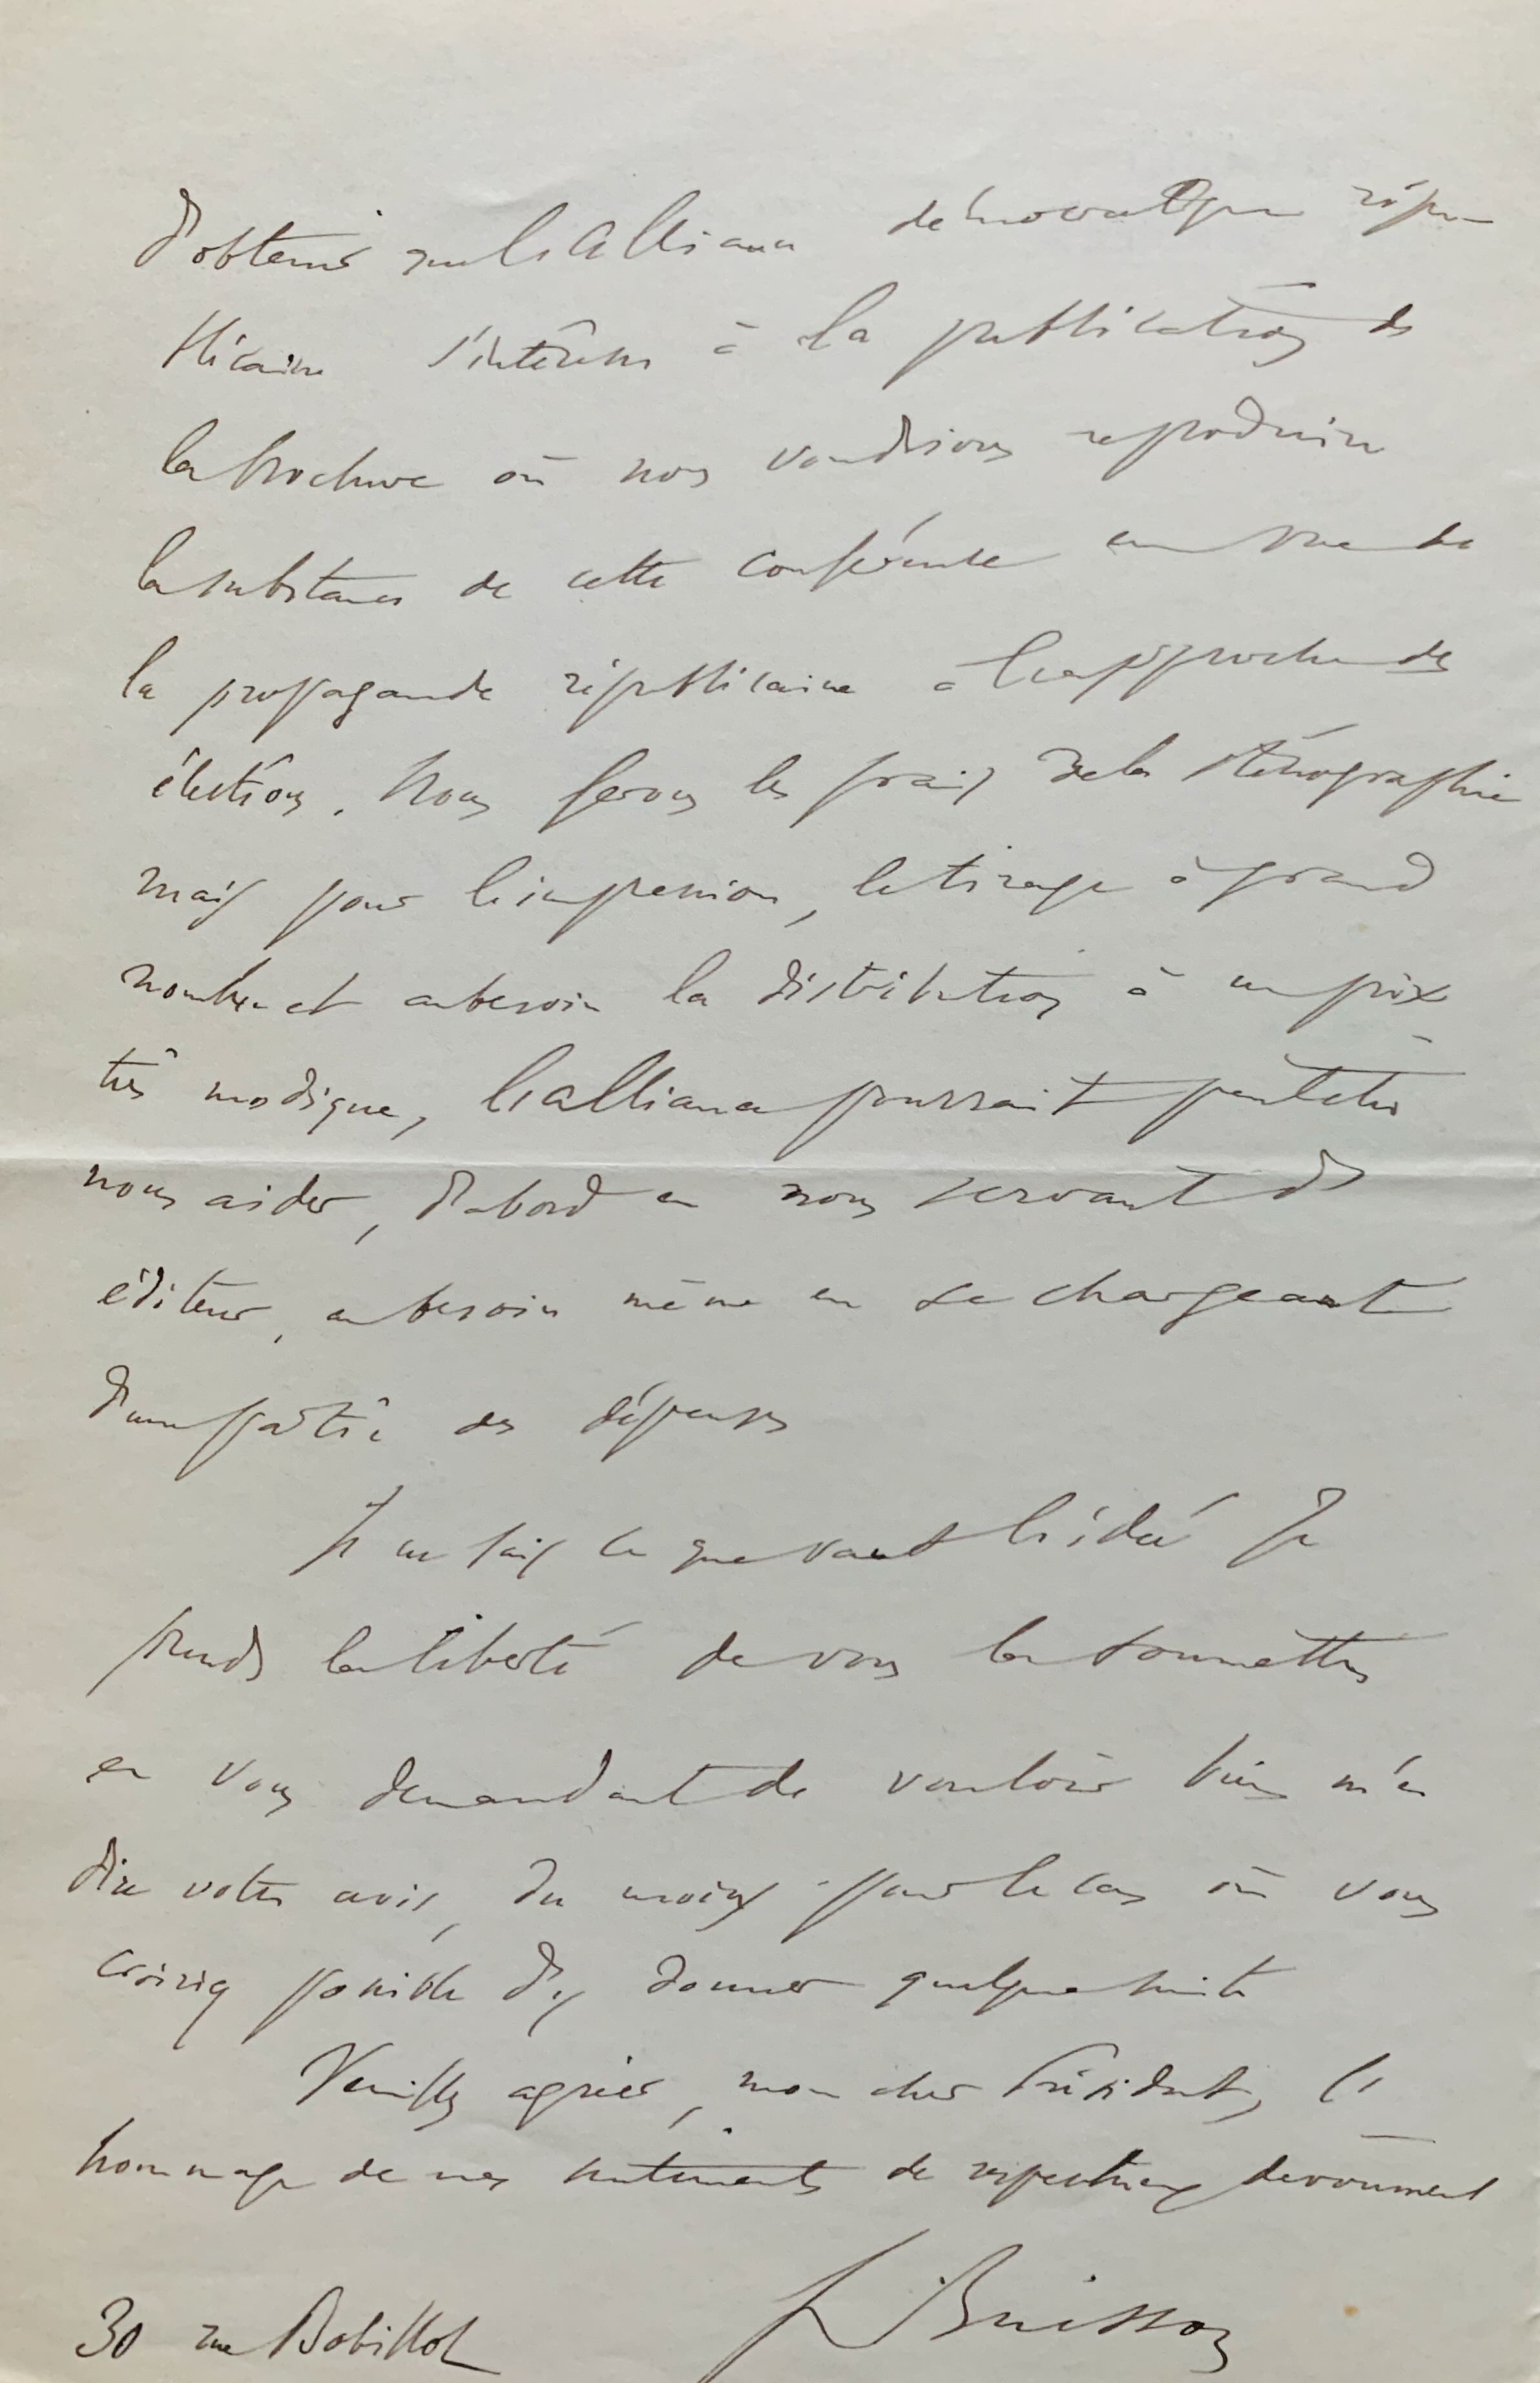 d'obtenir que l'Alliance démocratique répu-
blicaine s'intéresse à la publication de
la brochure où nous voudrions reproduire
la substance de cette conférence en vue de
la propagande républicaine à l'approche des
élections. Nous ferons les frais de la sténographie
mais pour l'impression, le tirage à grand
nombre et au besoin la distribution à un prix
très modique, l'alliance pourrait peut être
nous aider, d'abord en nous servant d'
éditeur, au besoin même en se chargeant
d'une partie des dépenses
Je ne sais ce que vaut l'idée Je
prends la liberté de vous la soumettre
en vous demandant de vouloir bien m'en
dire votre avis, du moins pour le cas où vous
croiriez possible d'y donner quelque suite
Veuillez agréer, mon cher Président, l'
hommage de mes sentiments de respectueux dévouement
F Buisson
30 rue Bobillot